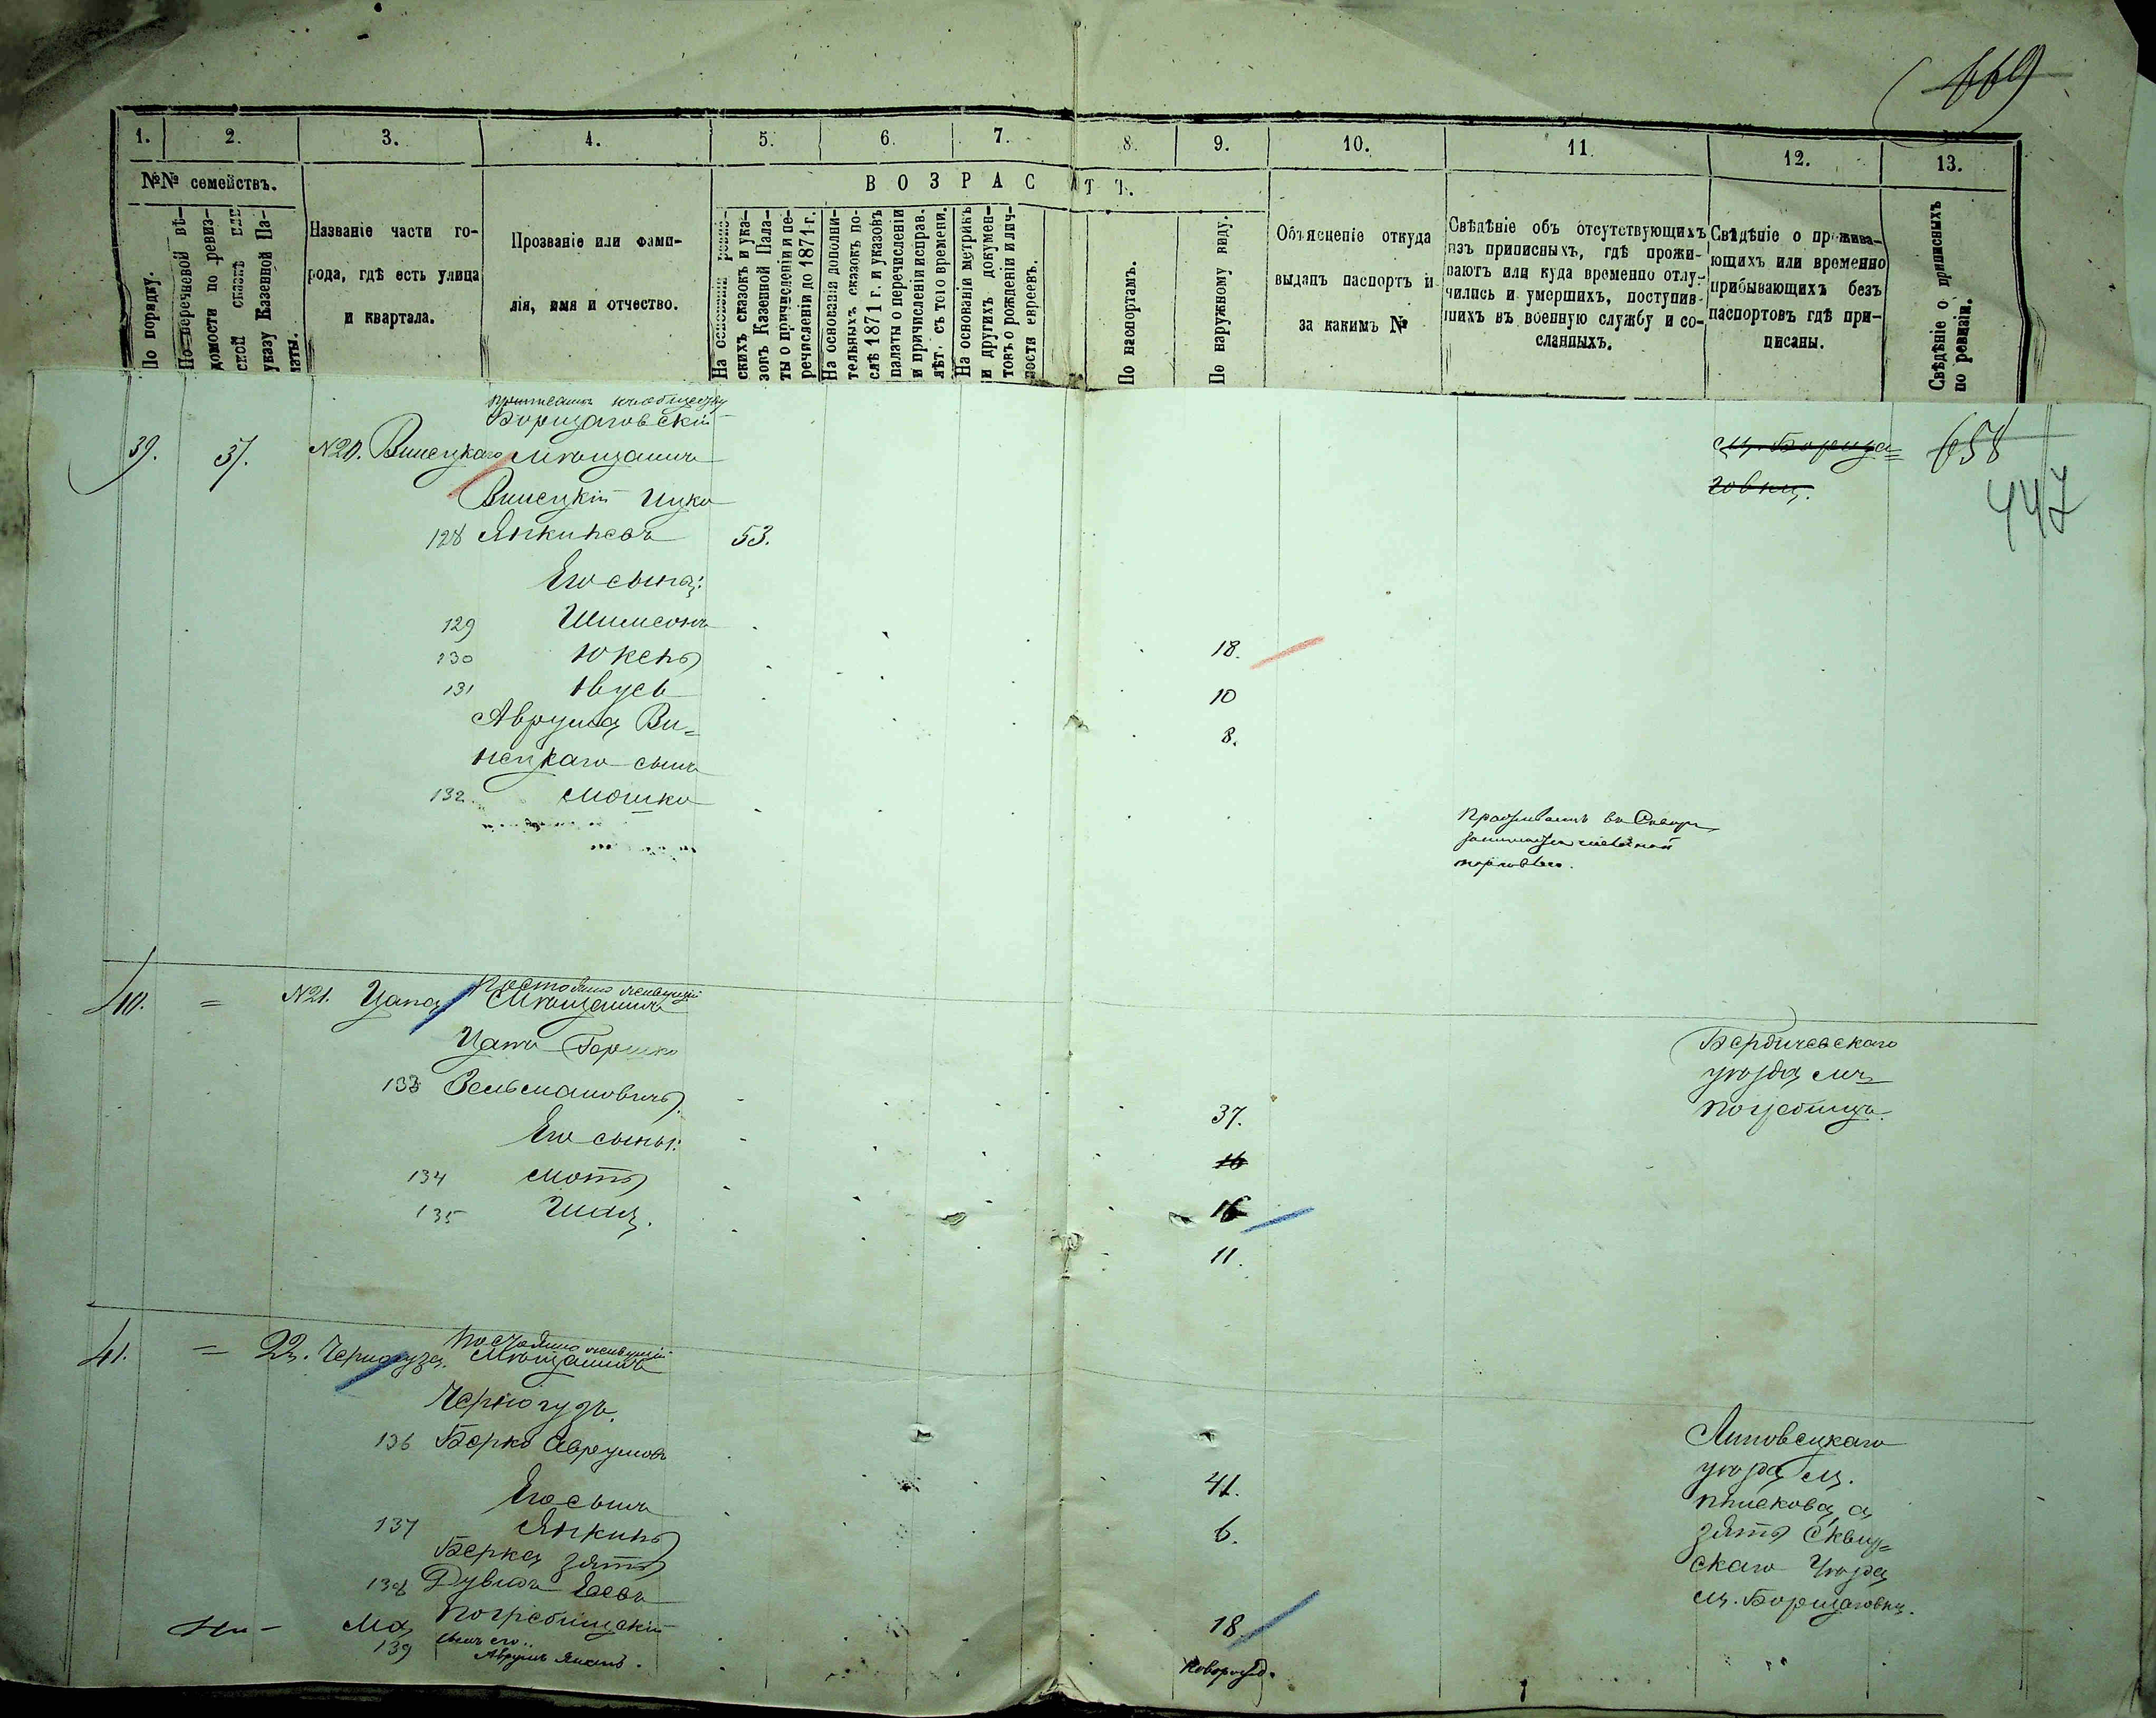 669
1. 2. 3. 4. 5. 6. 7. 8. 9. 10. 11. 12. 13.
№№ семействъ.
ВОЗРАСТЪ.
По порядку.
По перечневой вѣ-
домости по ревиз-
ской сказкѣ или
указу Казенной Па-
латы.
Названіе части го-
рода, гдѣ есть улица
и квартала.
Прозваніе или фами-
лія, имя и отчество.
На основаніи ревиз-
скихъ сказокъ и ука-
зовъ Казенной Пала-
ты о причисленіи и пе-
речисленіи до 1871 г.
На основаніи дополни-
тельныхъ сказокъ по-
слѣ 1871 г. и указовъ
палаты о перечисленіи
и причисленіи исправ.
лѣт. съ того времени.
На основаніи метрикъ
и другихъ докумен-
товъ о рожденіи и лич-
ности евреевъ.
По паспортамъ.
По наружному виду.
Объясненіе откуда
выданъ паспортъ и
за какимъ №
Свѣдѣніе объ отсутствующихъ
изъ приписныхъ, гдѣ прожи-
ваютъ или куда временно отлу-
чились и умершихъ, поступив-
шихъ въ военную службу и со-
сланныхъ.
Свѣдѣніе о прожива-
ющихъ или временно
прибывающихъ безъ
паспортовъ гдѣ при-
писаны.
Свѣдѣніе о приписныхъ
по ревизіи.
Борщаговскій
39. 37. №20. Винецкаго Мѣщанинъ
м. Борща=
говки.
658
447
Винецкій Ицко
128 Янкилевъ 53.
Его сыны:
129 Шимсонъ 18.
130 Юкель 10
131 Ивусь 8.
Аврума Ви=
нецкаго сынъ
132 Мошко
Проживаетъ въ Сквирѣ
торговлею.
40. = №21. Цапа Постоянно живущій
Мѣщанинъ
Цапъ Гершко
133 Зельмановичъ 37.
Бердичевскаго
уѣзда м.
Погребищъ.
Его сыны: 16
134 Мотъ 16
135 Шая. 11.
41. = 22. Черногуза. Постоянно живущій
Мѣщанинъ
Черногузъ
136 Берко Аврумовъ 41.
Липовецкаго
уѣзда м.
Пліскова, а
зять Сквир=
скаго Уѣзда
м. Борщаговки.
Его сынъ
137 Янкель 6.
Берка зять
138 Дувидъ Іосевъ
Погребищскій 18
139 сынъ его
Аврумъ Янкель. Новорожд.